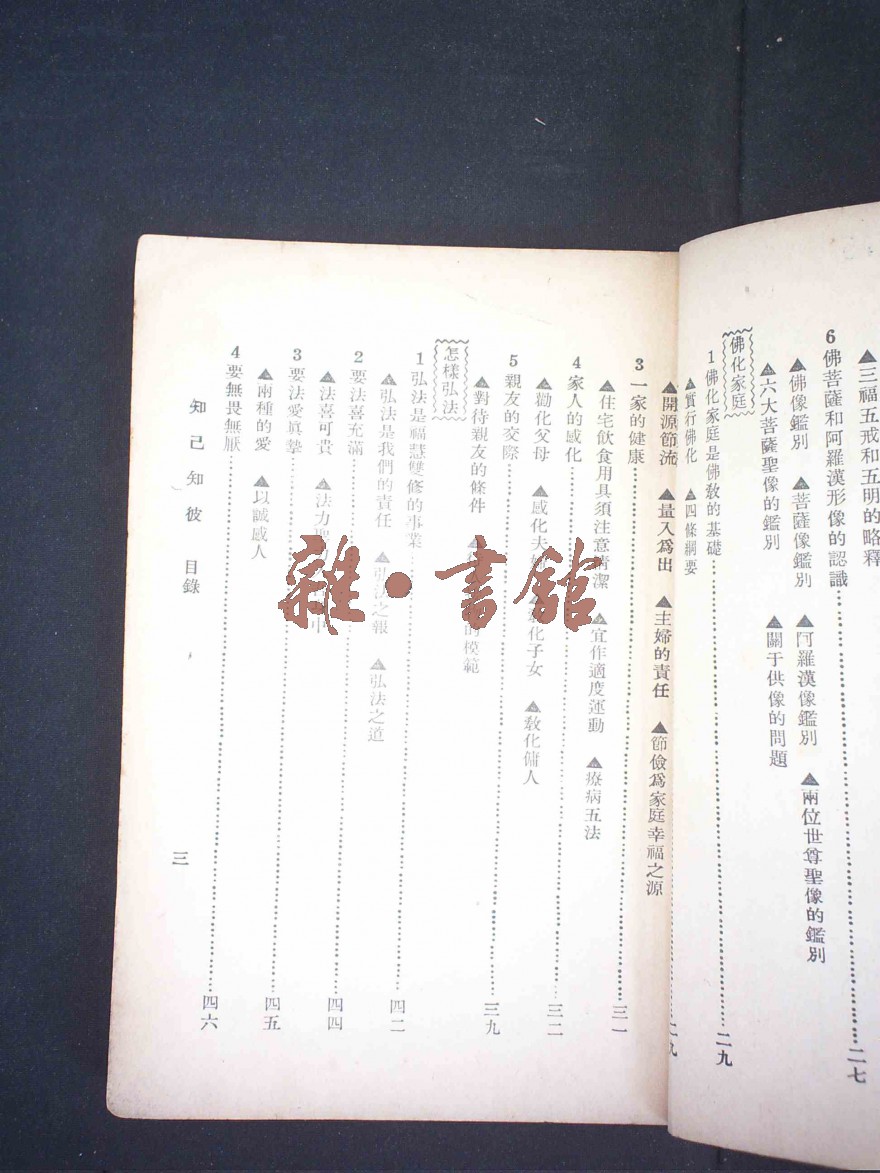 ▲三福五戒和五明的略釋
6 佛菩薩和阿羅漢形像的認識…………二七
▲佛像鑑別 ▲菩薩像鑑別 ▲阿羅漢像鑑別 ▲兩位世尊聖像的鑑別
▲六大菩薩聖像的鑑別 ▲關于供像的問題
佛化家庭
1 佛化家庭是佛教的基礎…………二九
▲實行佛化 ▲四條綱要
▲開源節流 ▲量入爲出 ▲主婦的責任 ▲節儉爲家庭幸福之源
3 一家的健康…………三一
▲住宅飲食用具須注意清潔 ▲宜作適度運動 ▲療病五法
4 家人的感化…………三二
▲勸化父母 ▲感化夫 化子女 ▲教化傭人
5 親友的交際…………三九
▲對待親友的條件 的模範
怎樣弘法
1 弘法是福慧雙修的事業…………四二
▲弘法是我們的責任 ▲弘法之報 ▲弘法之道
2 要法喜充滿…………四四
▲法喜可貴 ▲法力 中
3 要法愛眞摯…………四五
▲兩種的愛 ▲以誠感人
4 要無畏無厭…………四六
知己知彼 目錄
三
雜·書館